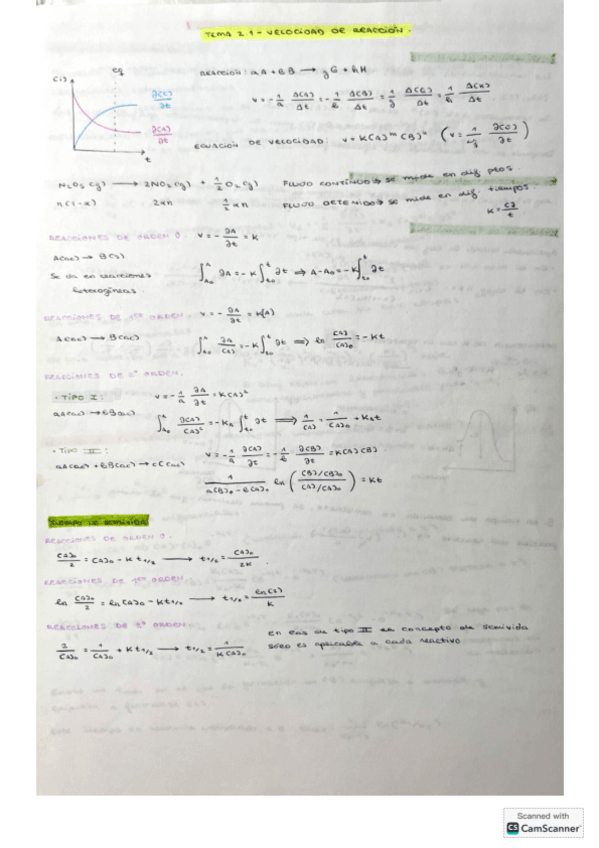 TEMA 2.1 - VELOCIDAD DE REACCIÓN.
[i] eq
∂[C]/∂t
∂[A]/∂t
t
REACCIÓN: aA + bB → gG + hH
v = - 1/a Δ[A]/Δt = - 1/b Δ[B]/Δt = 1/g Δ[G]/Δt = 1/h Δ[H]/Δt
ECUACIÓN DE VELOCIDAD: v = K[A]^m [B]^n
N₂O₅ (g) → 2NO₂ (g) + 1/2 O₂ (g) FLUJO CONTÍNUO → se mide en dif. ptos.
n(1-x) 2xn 1/2 xn FLUJO DETENIDO → se mide en dif. tiempos.
REACCIONES DE ORDEN 0. v = - ∂A/∂t = K
A(ac) → B(s)
Se da en reacciones
heterogéneas.
∫ ∂A = -K ∫ ∂t ⇒ A - A₀ = -K ∫ ∂t
REACCIONES DE 1er ORDEN. v = - ∂A/∂t = K[A]
A(ac) → B(ac) ∫ ∂[A]/[A] = -K ∫ ∂t ⇒ ln [A]/[A]₀ = -Kt
REACCIONES DE 2º ORDEN.
· TIPO I: v = - 1/a ∂A/∂t = K[A]²
aA(ac) → bB(ac) ∫ ∂[A]/[A]² = -K_A ∫ ∂t ⇒ 1/[A] = 1/[A]₀ + K_A t
· TIPO II: v = - 1/a ∂[A]/∂t = - 1/b ∂[B]/∂t = K[A][B]
aA(ac) + bB(ac) → cC(ac)
1/(a[B]₀ - b[A]₀) ln ([B]/[B]₀ / [A]/[A]₀) = Kt
TIEMPO DE SEMIVIDA
REACCIONES DE ORDEN 0.
[A]₀/2 = [A]₀ - K t1/2 → t1/2 = [A]₀/2K
REACCIONES DE 1er ORDEN.
ln [A]₀/2 = ln[A]₀ - K t1/2 → t1/2 = ln(2)/K
REACCIONES DE 2º ORDEN.
2/[A]₀ = 1/[A]₀ + K t1/2 → t1/2 = 1/K[A]₀
En las de tipo II el concepto de semivida
sólo es aplicable a cada reactivo
Scanned with
CS CamScanner